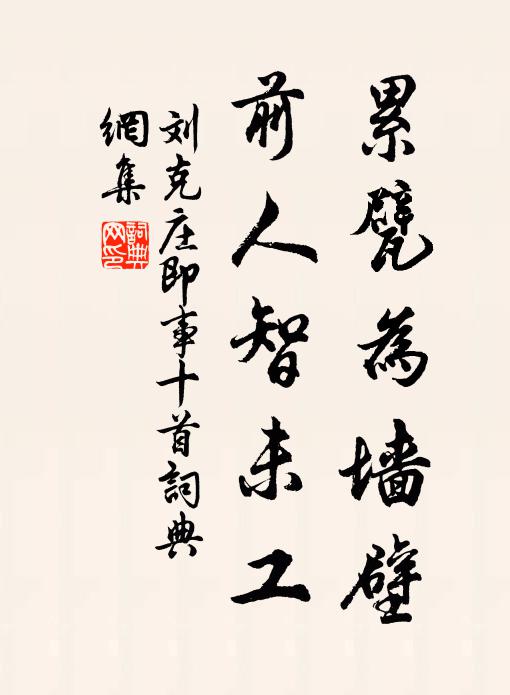 累甓為墙壁
前人智未工
刘克庄即事十首詞典
網集
詞典
网印